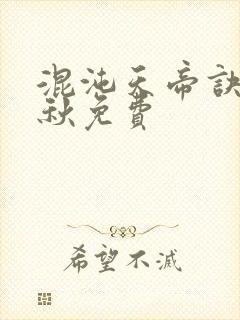 混沌天帝訣
秋免費
希望不滅